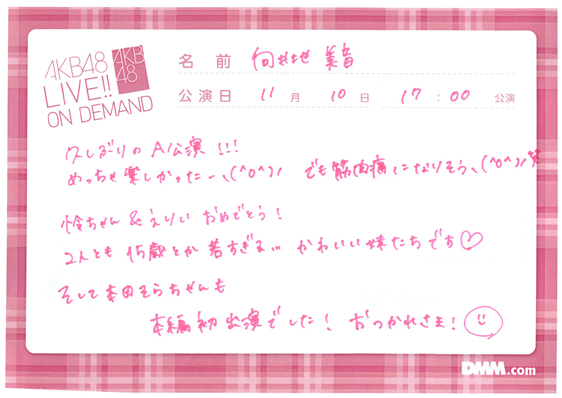 AKB48
LIVE!!
ON DEMAND
AKB
48
名前 向井地 美音
公演日 11月 10日 17:00 公演
久しぶりのA公演!!!
めっちゃ楽しかったー、(^o^)/ でも筋肉痛になりそう、(^o^)/笑
怜ちゃん&えりい おめでとう!
2人とも 15歳とか若すぎる!! かわいい妹たちです♡
そして本田そらちゃんも
本編初出演でした! おつかれさま!
DMM.com